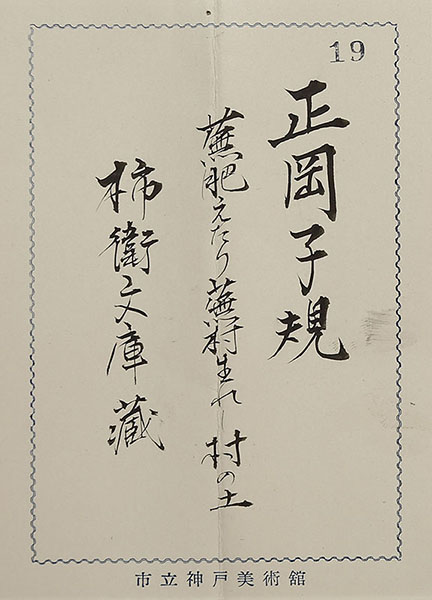 19
正岡子規
蕪肥えたり蕪村生れし村の土
柿衛文庫蔵
市立神戸美術館